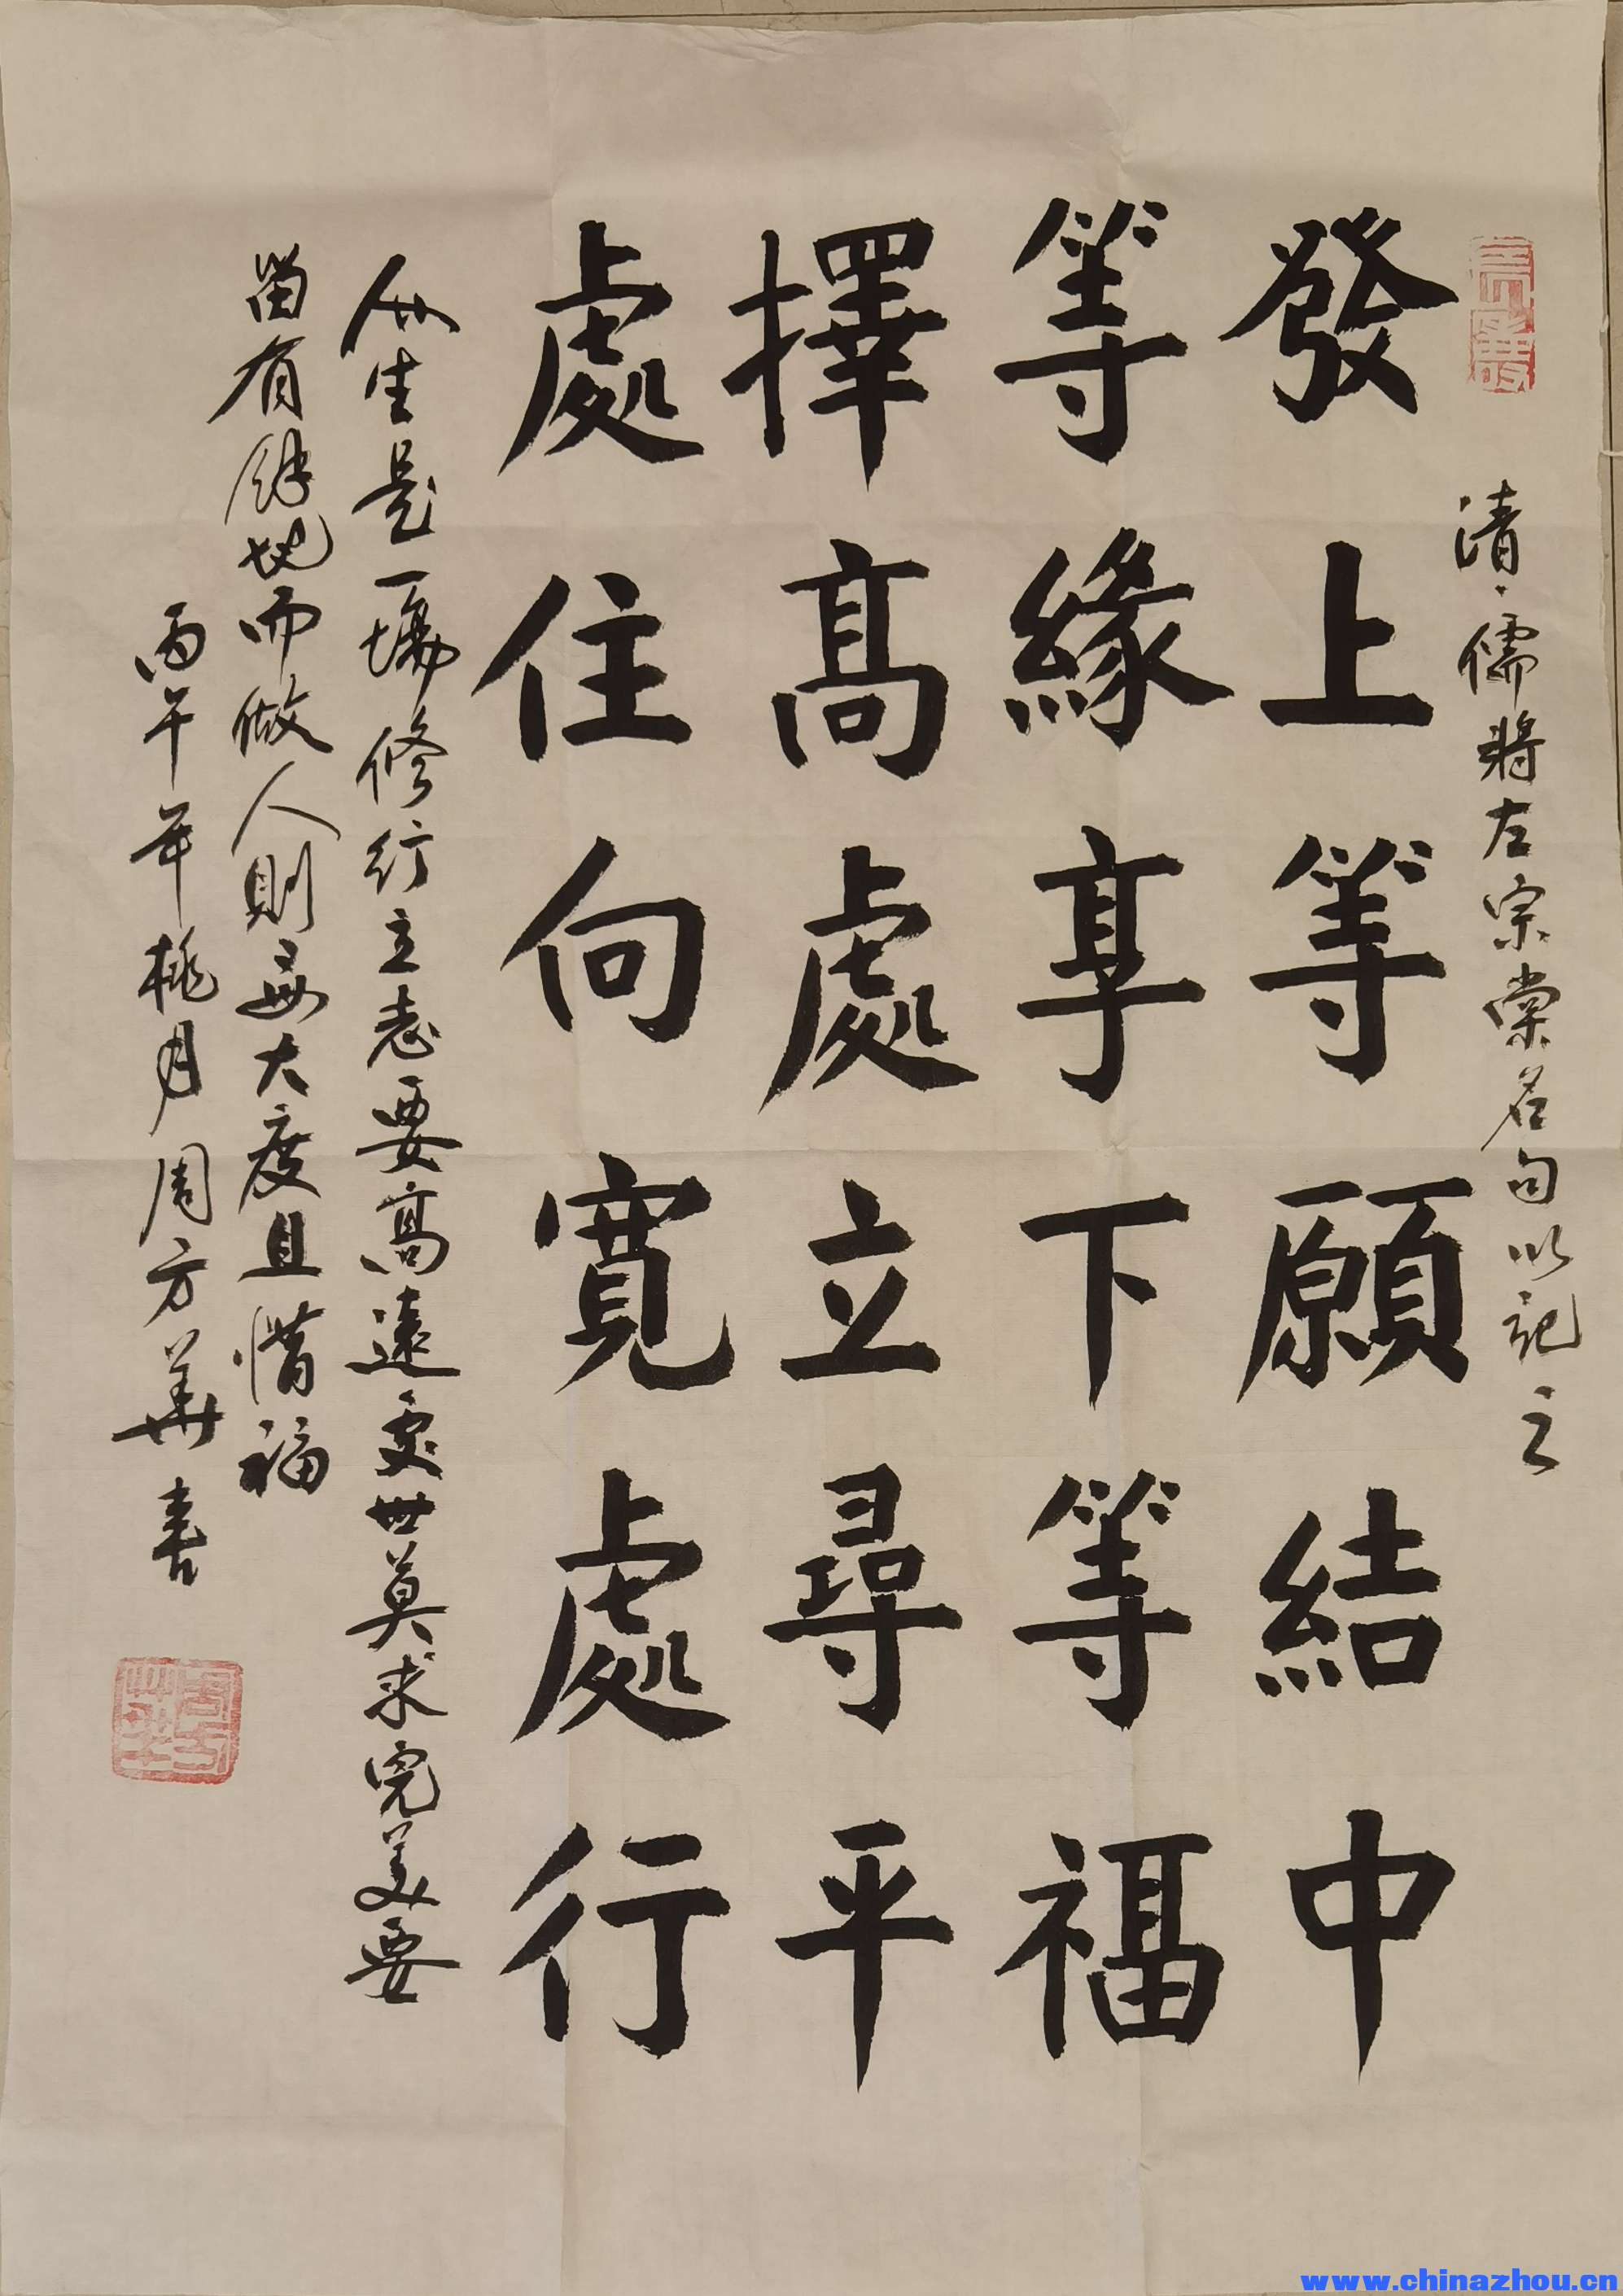 清·儒將左宗棠名句以記之
發上等願結中
等緣享下等福
擇高處立尋平
處住向寬處行
人生是一場修行立志要高遠處世莫求完美要
留有餘地而做人則要大度且惜福
丙午年桃月周方華書
www.chinazhou.cn